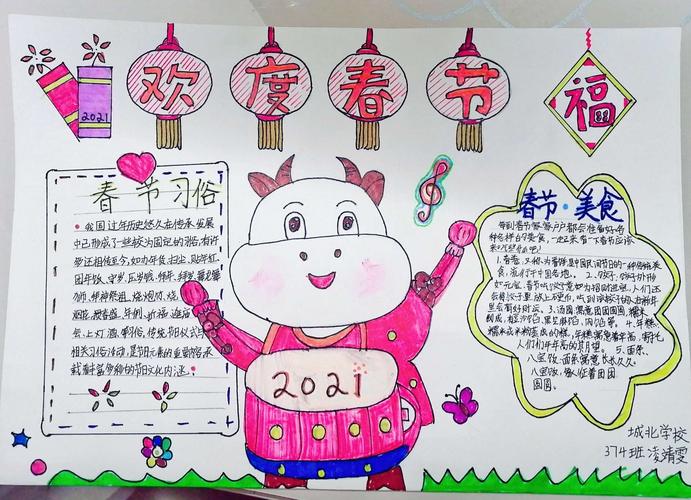 欢度春节
福
2021
春节习俗
我国过年历史悠久在传承发展
中已形成了一些较为固定的习俗有许
多还相传至今,如办年货、扫尘、贴年红、
团年饭、守岁、压岁钱、拜年、舞龙舞
狮、拜神祭祖、烧炮竹、烧
会、上灯酒、等习俗,传统节日仪式与
相关习俗活动,是节日元素的重要内容承
载着丰富多彩的节日文化内涵。
2021
春节·美食
每到春节家家户户都会准备好各
种各样的美食,一起来看一下春节应该
1.春卷,又称为春饼是中国民间节日的一种传统美
食,流行于中国各地。2.饺子,饺子外形
如元宝,春节吃饺子意如招财进宝,人们还
会有好运。3.汤圆,寓意团团圆圆,糯米
制成,有芝麻馅
糯米或米粉蒸成的糕,年糕寓意着年年高,寄托
人们年年高的美好期望。5.面条、
八宝饭。面条寓意长长久久。
八宝饭,象征着团团
圆圆。
城北学校
374班凌靖雯